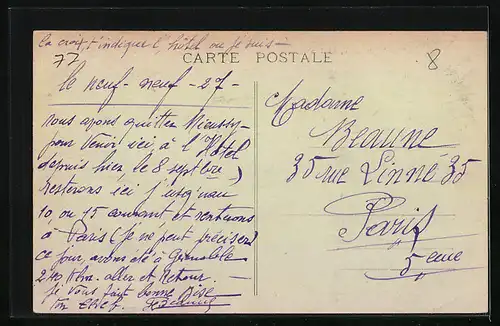 la croix t'indique l'hôtel ou je suis –
77
CARTE POSTALE
8
le neuf – neuf – 27 –
nous avons quitter Mieussy –
pour venir ici à l'Hôtel
depuis hier le 8 septbre)
resterons ici jusqu'au
10 ou 15 courant et rentrerons
à Paris (je ne peut préciser)
ce jour, avons été à Grenoble
240 Klm. aller et Retour.
je vous fait bonne Bise
ton
Madame
Beaune
35 rue Linné 35
Paris
5eme